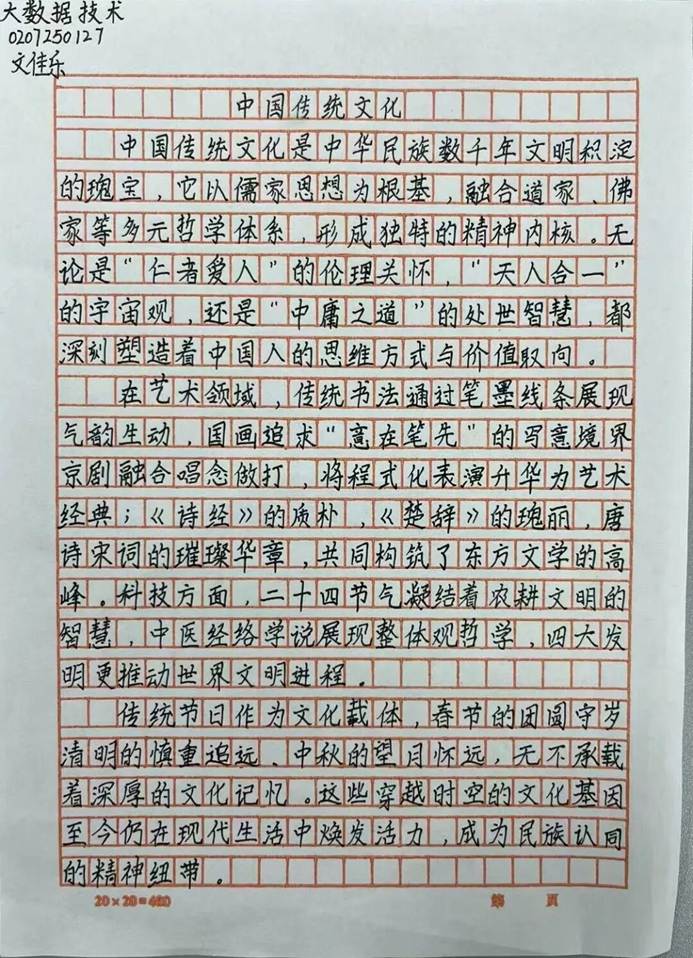 大数据技术
0207250127
文佳乐
中国传统文化
中国传统文化是中华民族数千年文明积淀
的瑰宝，它以儒家思想为根基，融合道家、佛
家等多元哲学体系，形成独特的精神内核。无
论是“仁者爱人”的伦理关怀，“天人合一”
的宇宙观，还是“中庸之道”的处世智慧，都
深刻塑造着中国人的思维方式与价值取向。
在艺术领域，传统书法通过笔墨线条展现
气韵生动，国画追求“意在笔先”的写意境界
京剧融合唱念做打，将程式化表演升华为艺术
经典；《诗经》的质朴，《楚辞》的瑰丽，唐
诗宋词的璀璨华章，共同构筑了东方文学的高
峰。科技方面，二十四节气凝结着农耕文明的
智慧，中医经络学说展现整体观哲学，四大发
明更推动世界文明进程。
传统节日作为文化载体，春节的团圆守岁
清明的慎重追远、中秋的望月怀远，无不承载
着深厚的文化记忆。这些穿越时空的文化基因
至今仍在现代生活中焕发活力，成为民族认同
的精神纽带。
20×20=400 第 页